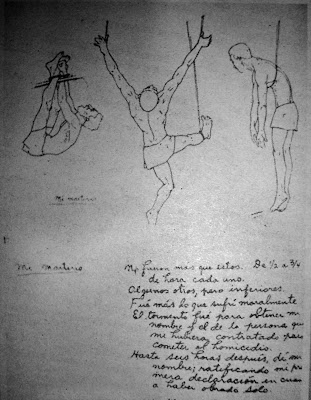 Mi martirio
Mi Martirio
No fueron más que estos. De ½ a ¾
de hora cada uno.
Algunos otros, pero inferiores.
Fué más lo que sufrí moralmente
El tormento fué para obtener mi
nombre y el de la persona que
me hubiera contratado para
cometer el homicidio.
Hasta seis horas después, dí mi
nombre; ratificando mi pri
mera declaración en cuan
a haber obrado solo.